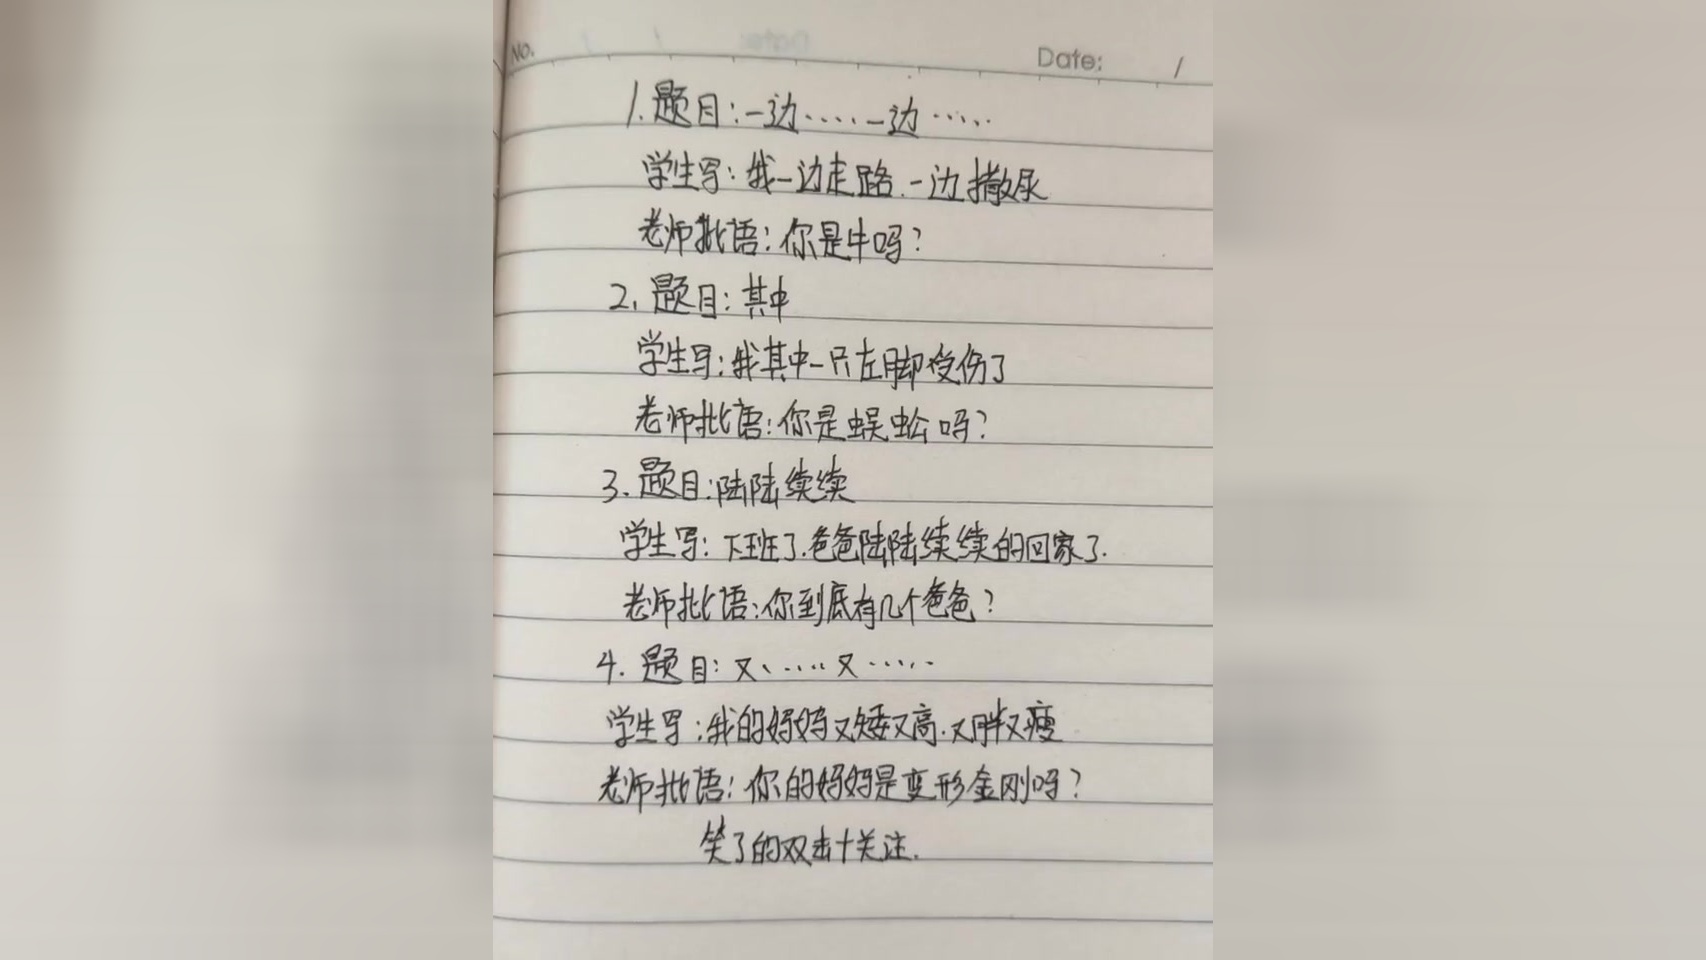 No.
Date: /
1.题目:一边.....一边.....
学生写:我一边走路.一边撒尿
老师批语:你是牛吗?
2.题目:其中
学生写:我其中一只左脚受伤了
老师批语:你是蜈蚣吗?
3.题目:陆陆续续
学生写:下班了.爸爸陆陆续续的回家了.
老师批语:你到底有几个爸爸?
4.题目:又、.....又.....
学生写:我的妈妈又矮又高.又胖又瘦
老师批语:你的妈妈是变形金刚吗?
笑了的双击+关注.